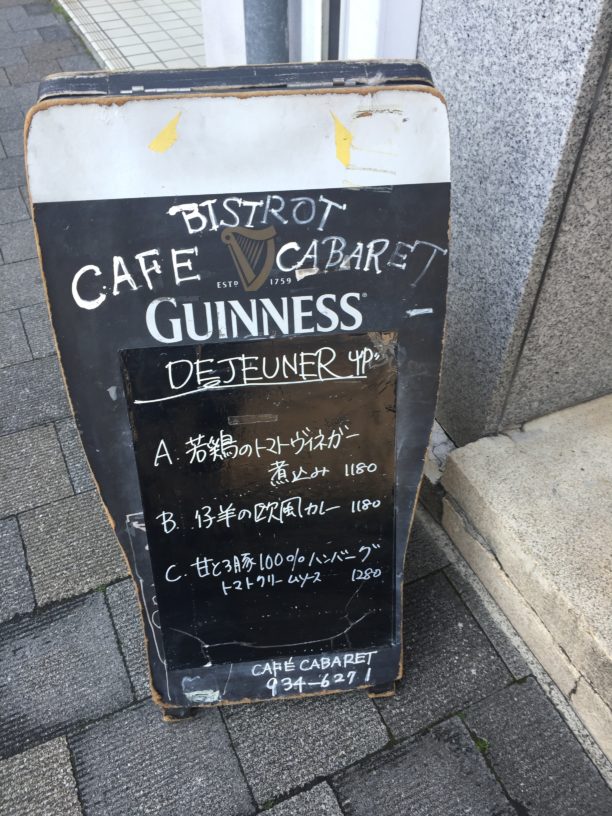 BISTROT
CAFE CABARET
ESTD 1759
GUINNESS
DEJEUNER
A. 若鶏のトマトヴィネガー
煮込み 1180
B. 仔羊の欧風カレー 1180
C. 甘とろ豚100%ハンバーグ
トマトクリームソース 1280
CAFÉ CABARET
934-6271